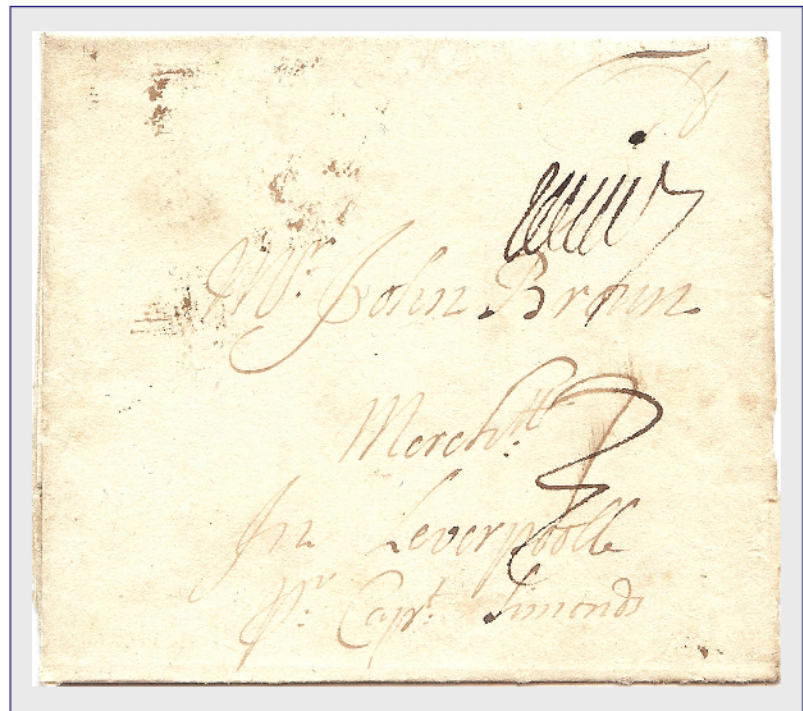 Mr. John Brown
Mercht.
In Leverpoolle
Pr. Capt. Simonds